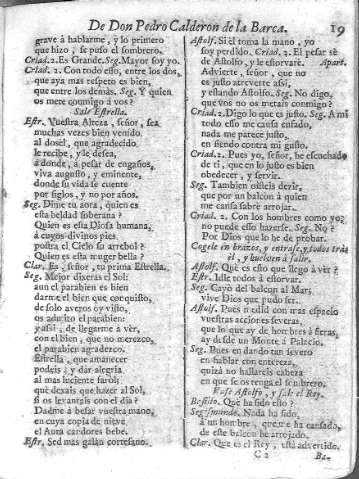 De Don Pedro Calderon de la Barca. 19
grave à hablarme, y lo primero
que hizo, se puso el sombrero.
Criad.2. Es Grande. Seg. Mayor soy yo.
Criad. 2. Con todo esso, entre los dos,
que aya mas respeto es bien,
que entre los demàs. Seg. Y quien
os mete conmigo à vos?
Sale Estrella.
Estr. Vuestra Alteza, señor, sea
muchas vezes bien venido
al dosel, que agradecido
le recibe, y le desea,
à donde, à pesar de engaños,
viva augusto, y eminente,
donde su vida se cuente
por siglos, y no por años.
Seg. Dime tu aora, quien es
esta beldad soberana?
Quien es esta Diosa humana,
à cuyos divinos pies
postra el Cielo su arrebol?
Quien es esta muger bella?
Clar. Es, señor, tu prima Estrella.
Seg. Mejor dixeras el Sol:
aun el parabien es bien
darme el bien que conquisto,
de solo averos oy visto,
os admito el parabien:
y assi, de llegarme à vèr,
con el bien, que no merezco,
el parabien agradezco.
Estrella, que amanecer
podeis, y dar alegria
al mas luciente farol;
què dexais que hazer al Sol,
si os levantais con el dia?
Dadme à besar vuestra mano,
en cuya copa de nieve
el Aura candores bebe.
Estr. Sed mas galàn cortesano.
Astolf. Si èl toma la mano, yo
soy perdido. Criad. 2. El pesar sè
de Astolfo, y le estorvarè. Apart.
Advierte, señor, que no
es justo atreverte assi,
y estando Astolfo. Seg. No digo,
que vos no os metais conmigo?
Criad. 2. Digo lo que es justo. Seg. A mi
todo esso me causa enfado,
nada me parece justo,
en siendo contra mi gusto.
Criad. 2. Pues yo, señor, he escuchado
de ti, que en lo justo es bien
obedecer, y servir.
Seg. Tambien oisteis dezir,
que por un balcon à quien
me cansa sabrè arrojar.
Criad. 2. Con los hombres como yo,
no puede esso hazerse. Seg. No?
Por Dios que lo he de probar.
Cogele en brazos, y entrase, y todos tràs
èl, y buelven à salir.
Astolf. Què es esto que llego à vèr?
Estr. Idle todos à estorvar.
Seg. Cayò del balcon al Mar,
vive Dios que pudo ser.
Astolf. Pues medid con mas espacio
vuestras acciones severas,
que lo que ay de hombres à fieras,
ay desde un Monte à Palacio.
Seg. Pues en dando tan severo
en hablar con entereza,
quizà no hallareis cabeza
en que se os tenga el sombrero.
Vase Astolfo, y sale el Rey.
Basilio. Què ha sido esto?
Segismundo. Nada ha sido,
à un hombre, que me ha cansado,
de esse balcon he arrojado.
Clar. Que es el Rey, està advertido.
C 2 Ba-